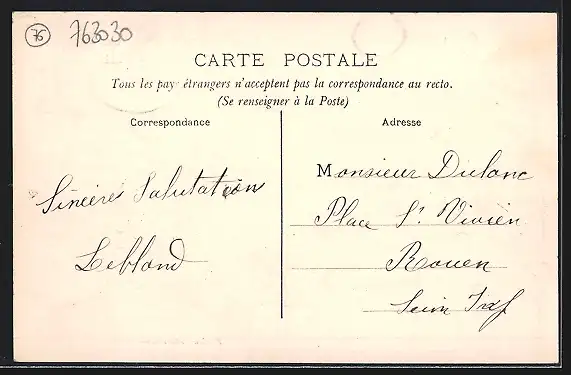 76 763030
CARTE POSTALE
Tous les pays étrangers n'acceptent pas la correspondance au recto.
(Se renseigner à la Poste)
Correspondance
Sincères Salutations
Leblond
Adresse
Monsieur Dulanc
Place St Vivien
Rouen
Seine Inf